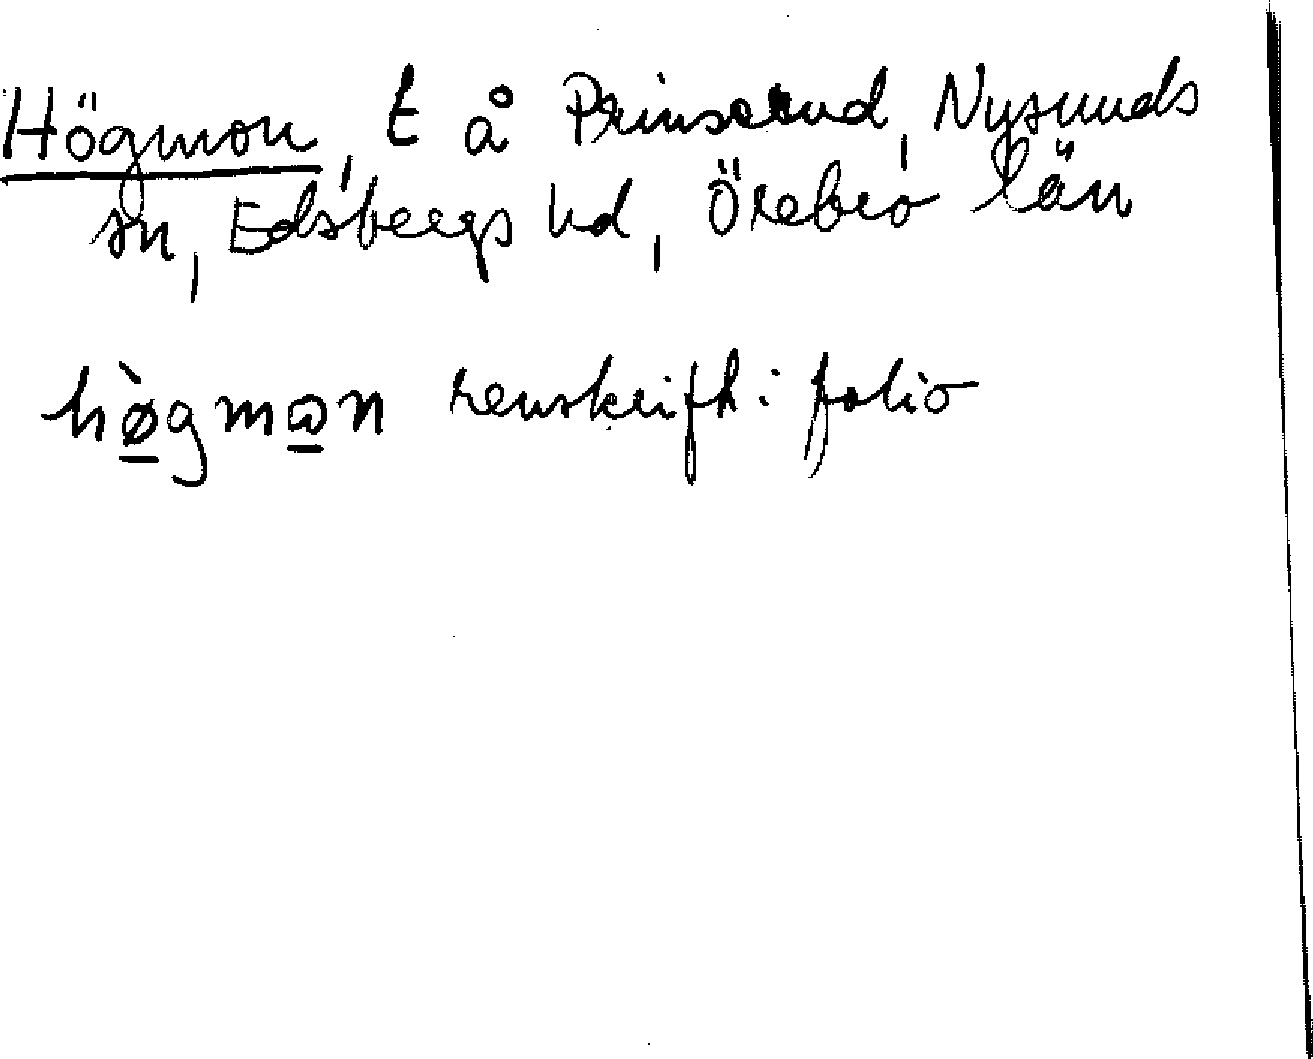 Högmon, t å Prinserud, Nysunds
sn, Edsbergs hd, Örebro län
hø̀gmωn renskrift i folio